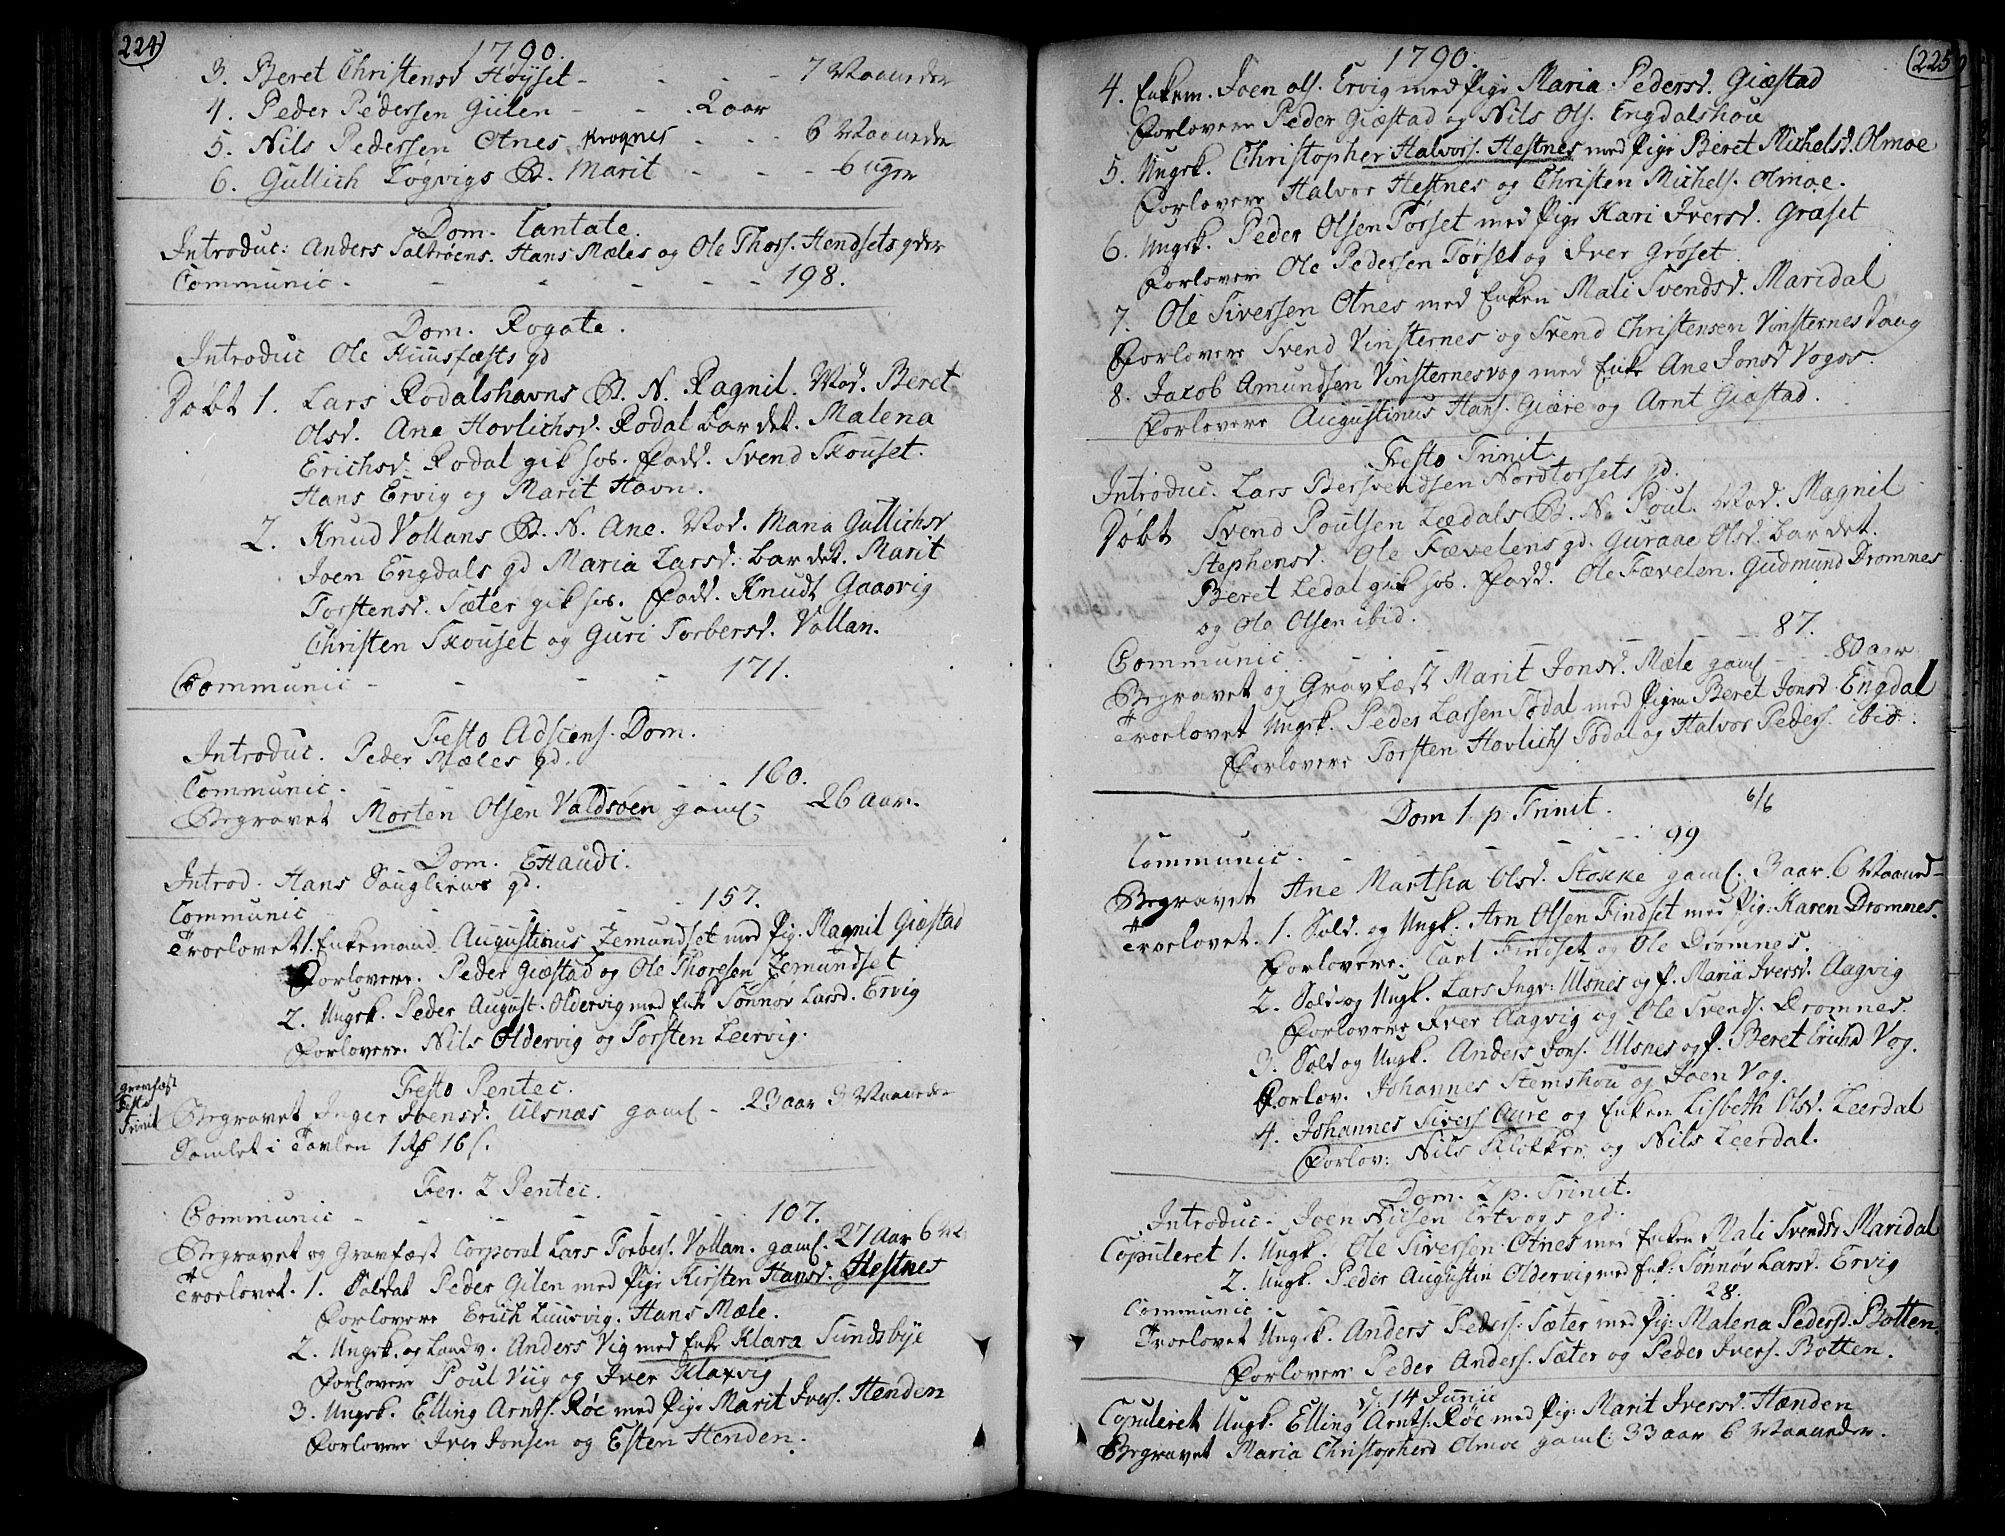 224)
1790.
3. Beret Christensd Høyset - - - - 7 Maaneder
4. Peder Pedersen Gulen - - 2 aar
5. Nils Pedersen Otnes Krognes - - 6 Maaneder
6. Gullich Løgvigs B. Marit - - - 6 uger
Dom. Cantate.
Introduc: Anders Saltrøens. Hans Mæles og Ole Thors. Hendsets qder
Communic - - - - - - 198.
Dom. Rogate.
Introduc Ole Huusfæsts qd
Døbt 1. Lars Rodalshavns B. N. Ragnil. Mod. Beret
Olsd. Ane Hovlichsd. Rodal bar det. Malena
Erichsd. Rodal gik hos. Fadd. Svend Skouset.
Hans Ervig og Marit Havn.
2. Knud Vollans B. N. Ane. Mod. Maria Gullichsd
Joen Engdals qd Maria Larsd: bar det. Marit
Torstensd. Sæter gik hos. Fadd. Knudt Gaasvig
Christen Skouset og Guri Torbersd. Vollan.
Communic - - - - 171.
Festo Adscens. Dom.
Introduc. Peder Mæles qd.
Communic. - - - 160.
Begravet Morten Olsen Valdsøen gaml - 26 aar.
Dom. Exaudi.
Introd. Hans Sougliens qd.
Communic - - - - 157.
Troelovet 1. Enkemand Augustinus Zemundset med Pig. Magnil Giæstad
Forlovere. Peder Giæstad og Ole Thoresen Zemundset
2. Ungk. Peder August. Oldervig med Enke Sønnøv Larsd. Ervig
Forlovere. Nils Oldervig og Torsten Leervig.
gravfæst
Festo
Trinit
Festo Pentec.
Begravet Inger Ibensd. Ulsnæs gaml - 23 aar 3 Maaneder
Samlet i Tavlen 1 Rd 16 s.
Fer. 2 Pentec.
Communic - - - - - 107.
Begravet og Gravfæst Corporal Lars Torbers. Vollan. gaml. 27 aar 6
Troelovet. 1. Soldat Peder Gilen med Pige Kirsten Hansd. Hestnes
Forlovere Erich Luusvig. Hans Mæle.
2. Ungk. og Landv. Anders Vig med Enke Klara Sundsbye
Forlovere Poul Viig og Iver Klaxvig
3. Ungk. Elling Arnts. Røe med Pige Marit Ivers. Henden
Forlovere Iver Jonsen og Esten Henden.
225)
1790.
4. Enkem. Joen Ols. Ervig med Pige Maria Pedersd. Giæstad
Forlovere Peder Giæstad og Nils Ols. Engdalshou
5. Ungk. Christopher Halvors. Hestnes med Pige Beret Michelsd. Olmoe
Forlovere Halvor Hestnes og Christen Michels. Olmoe.
6. Ungk. Peder Olsen Torset med Pige Kari Iversd. Grøset
Forlovere Ole Pedersen Tørset og Iver Grøset.
7. Ole Siversen Otnes med Enken Mali Svendsd. Maridal
Forlovere Svend Vinsternes og Svend Christensen Vinsternesvaag
8. Jacob Amundsen Vinsternesvog med Enke Ane Jonsd Vogos.
Forlovere Augustinus Hans. Giære og Arnt Giæstad.
Festo Trinit.
Introduc. Lars Bersvendsen Nordtorsets qd.
Døbt Svend Poulsen Lædals B. N. Poul. Mod. Magnil
Stephensd. Ole Fævelens qd. Guraae Olsd. bar det.
Beret Ledal gik hos. Fadd. Ole Fævelen. Gudmund Dromnes
og Ole Olsen ibid.
Communic - - - - 87.
Begravet og Gravfæst Marit Jonsd. Mæle gaml - 80 aar
Troelovet Ungk. Peder Larsen Todal med Pigen Beret Jonsd. Engdal
Forlovere Torsten Hovlichs Todal og Halvor Peders. ibid.
Dom 1. p. Trinit. 6/6
Communic. - - - - 99
Begravet Ane Martha Olsd. Stokke gaml. 3 aar 6 Maaned
Troelovet. 1. Sold. og Ungk. Arn Olsen Findset med Pig: Karen Dromnes.
Forlovere. Carl Findset og Ole Dromnes.
2. Sold og Ungk. Lars Ingv: Ulsnes og P. Maria Iversd. Aagvig
Forlovere Iver Aagvig og Ole Svends. Dromnes.
3. Sold og Ungk. Anders Jons. Ulsnes og P. Beret Erichd Vog.
Forlov. Johannes Stemshou og Joen Vog.
4. Johannes Sivers Aure og Enken Lisbeth Olsd. Leerdal
Forlov: Nils Klokker og Nils Leerdal.
Dom. 2 p. Trinit.
Introduc. Joen Nilsen Ertvogs qd.
Copuleret 1. Ungk. Ole Siversen Otnes med Enken Mali Svendsd Maridal
2. Ungk. Peder Augustin Oldervig med Enk: Sonnøv Larsd. Ervig
Communic - 28.
Troelovet Ungk. Anders Peders. Sæter med Pig: Malena Pedersd. Botten.
Forlovere Peder Anders. Sæter og Peder Ivers. Botten.
d. 14 Junii
Copuleret Ungk. Elling Arnts. Røe med Pig: Marit Iversd. Hænden
Begravet Maria Christopherd Olmoe gaml. 33 aar 6 Maaneder.